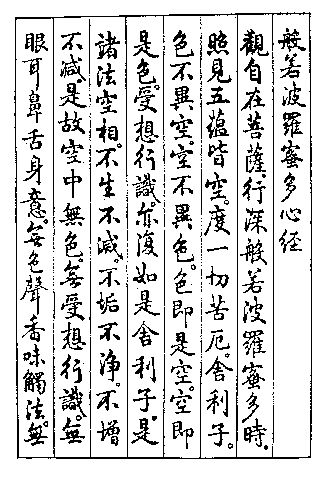 般若波羅蜜多心経
觀自在菩薩。行深般若波羅蜜多時。
照見五蘊皆空。度一切苦厄。舍利子。
色不異空。空不異色。色即是空。空即
是色。受想行識。亦復如是舍利子。是
諸法空相。不生不滅。不垢不浄。不增
不減。是故空中無色。無受想行識。無
眼耳鼻舌身意。無色聲香味觸法。無